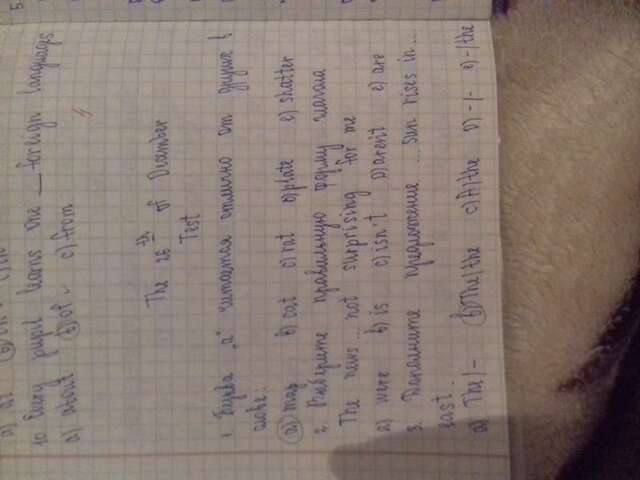 10. Every pupil learns one __ foreign languages
a) about b) of c) from
The 25th of December
Test
1. Буква "a" читается отлично от других в
слове:
a) map b) cat c) rat d) plate e) shatter
2. Выберите правильную форму глагола
The news ... not surprising for me
a) were b) is c) isn't d) aren't e) are
3. Дополните предложение ... sun rises in ...
east.
a) The/- b) The/the c) A/the d) -/- e) -/the